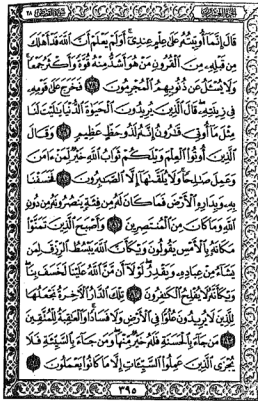 قَالَ إِنَّمَا أُوتِيتُهُ عَلَىٰ عِلْمٍ عِندِي أَوَلَمْ يَعْلَمْ أَنَّ اللَّهَ قَدْ أَهْلَكَ
مِن قَبْلِهِ مِنَ الْقُرُونِ مَنْ هُوَ أَشَدُّ مِنْهُ قُوَّةً وَأَكْثَرُ جَمْعًا
وَلَا يُسْأَلُ عَن ذُنُوبِهِمُ الْمُجْرِمُونَ ٧٨ فَخَرَجَ عَلَىٰ قَوْمِهِ
فِي زِينَتِهِ قَالَ الَّذِينَ يُرِيدُونَ الْحَيَاةَ الدُّنْيَا يَالَيْتَ لَنَا
مِثْلَ مَا أُوتِيَ قَارُونُ إِنَّهُ لَذُو حَظٍّ عَظِيمٍ ٧٩ وَقَالَ
الَّذِينَ أُوتُوا الْعِلْمَ وَيْلَكُمْ ثَوَابُ اللَّهِ خَيْرٌ لِّمَنْ آمَنَ
وَعَمِلَ صَالِحًا وَلَا يُلَقَّاهَا إِلَّا الصَّابِرُونَ ٨٠ فَخَسَفْنَا
بِهِ وَبِدَارِهِ الْأَرْضَ فَمَا كَانَ لَهُ مِن فِئَةٍ يَنصُرُونَهُ مِن دُونِ
اللَّهِ وَمَا كَانَ مِنَ الْمُنتَصِرِينَ ٨١ وَأَصْبَحَ الَّذِينَ تَمَنَّوْا
مَكَانَهُ بِالْأَمْسِ يَقُولُونَ وَيْكَأَنَّ اللَّهَ يَبْسُطُ الرِّزْقَ لِمَن
يَشَاءُ مِنْ عِبَادِهِ وَيَقْدِرُ لَوْلَا أَن مَّنَّ اللَّهُ عَلَيْنَا لَخَسَفَ بِنَا
وَيْكَأَنَّهُ لَا يُفْلِحُ الْكَافِرُونَ ٨٢ تِلْكَ الدَّارُ الْآخِرَةُ نَجْعَلُهَا
لِلَّذِينَ لَا يُرِيدُونَ عُلُوًّا فِي الْأَرْضِ وَلَا فَسَادًا وَالْعَاقِبَةُ لِلْمُتَّقِينَ
٨٣ مَن جَاءَ بِالْحَسَنَةِ فَلَهُ خَيْرٌ مِّنْهَا وَمَن جَاءَ بِالسَّيِّئَةِ فَلَا
يُجْزَى الَّذِينَ عَمِلُوا السَّيِّئَاتِ إِلَّا مَا كَانُوا يَعْمَلُونَ ٨٤
٣٩٥